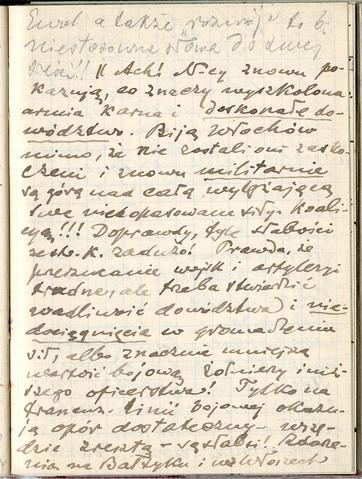 a także "rozwój" to b.
niestosowne słowa do owej
treści!! "Ach! N-cy znowu po-
kazują, co znaczy wyszkolona
armia karna i doskonałe do-
wództwo. Biją Włochów
mimo, że nie zostali oni zasko-
czeni i znowu militarnie
są górą nad całą wytężającą
swe siły koali-
cją!!! Doprawdy, tyle słabości
za dużo! Prawda, że
przerzucanie wojsk i artylerji
trudne, ale trzeba stwierdzić
wadliwość dowództwa i nie-
dociągnięcia w gromadzeniu
sił, albo znacznie mniejszą
wartość bojową żołnierzy i niż-
szego oficerstwa! Tylko na
francus. linii bojowej okazu-
ją opór dostateczny - wszę-
dzie zresztą - są słabsi!
na Bałtyku i we Włoszech